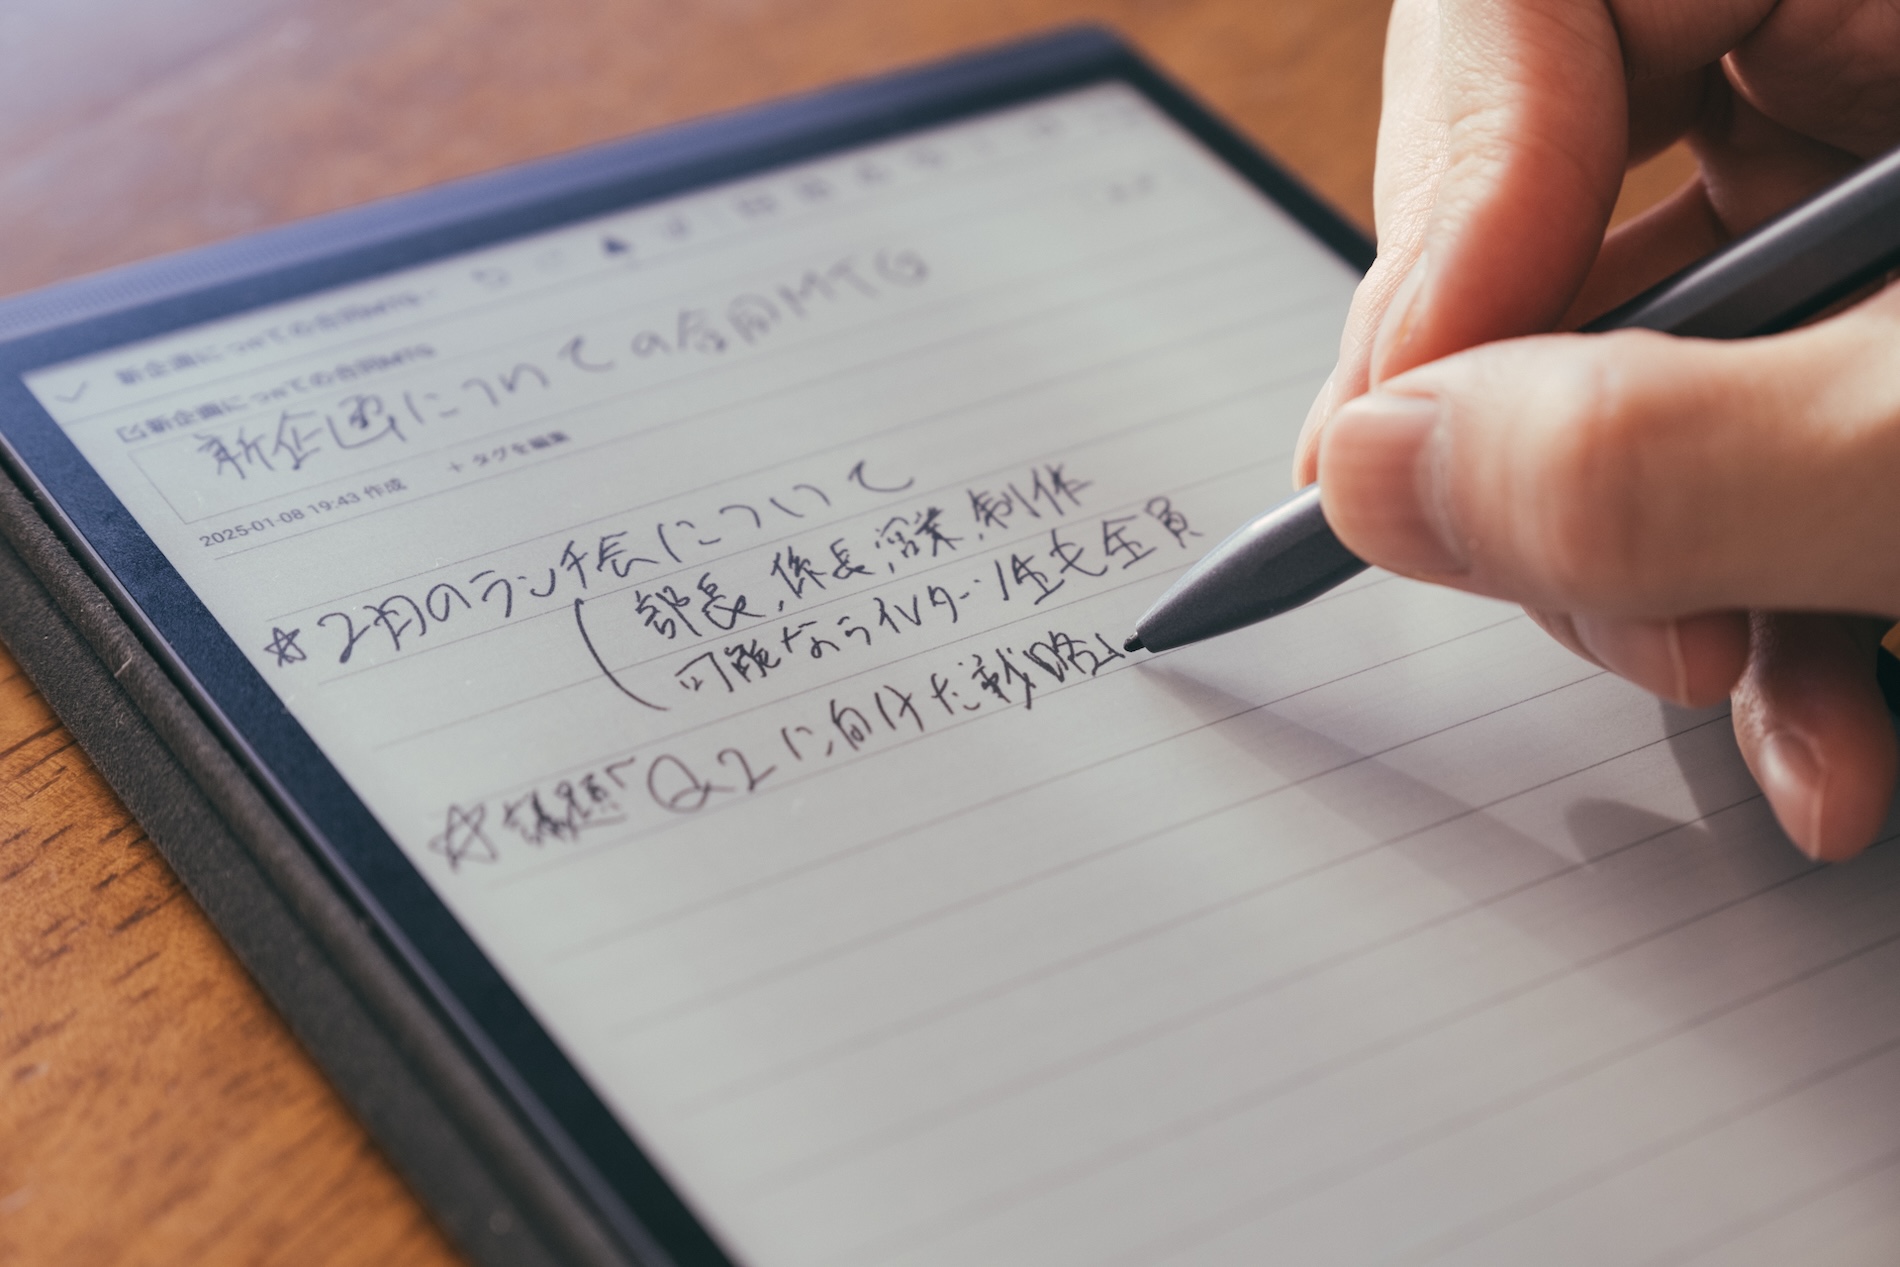 新企画についての合同MTG
新企画についての合同MTG
新企画についての合同MTG
2025-01-08 19:43 作成 + タグを編集
☆2月のランチ会について
(部長、係長、営業、制作
可能ならインターン生も全員
☆議題「Q2に向けた戦略」